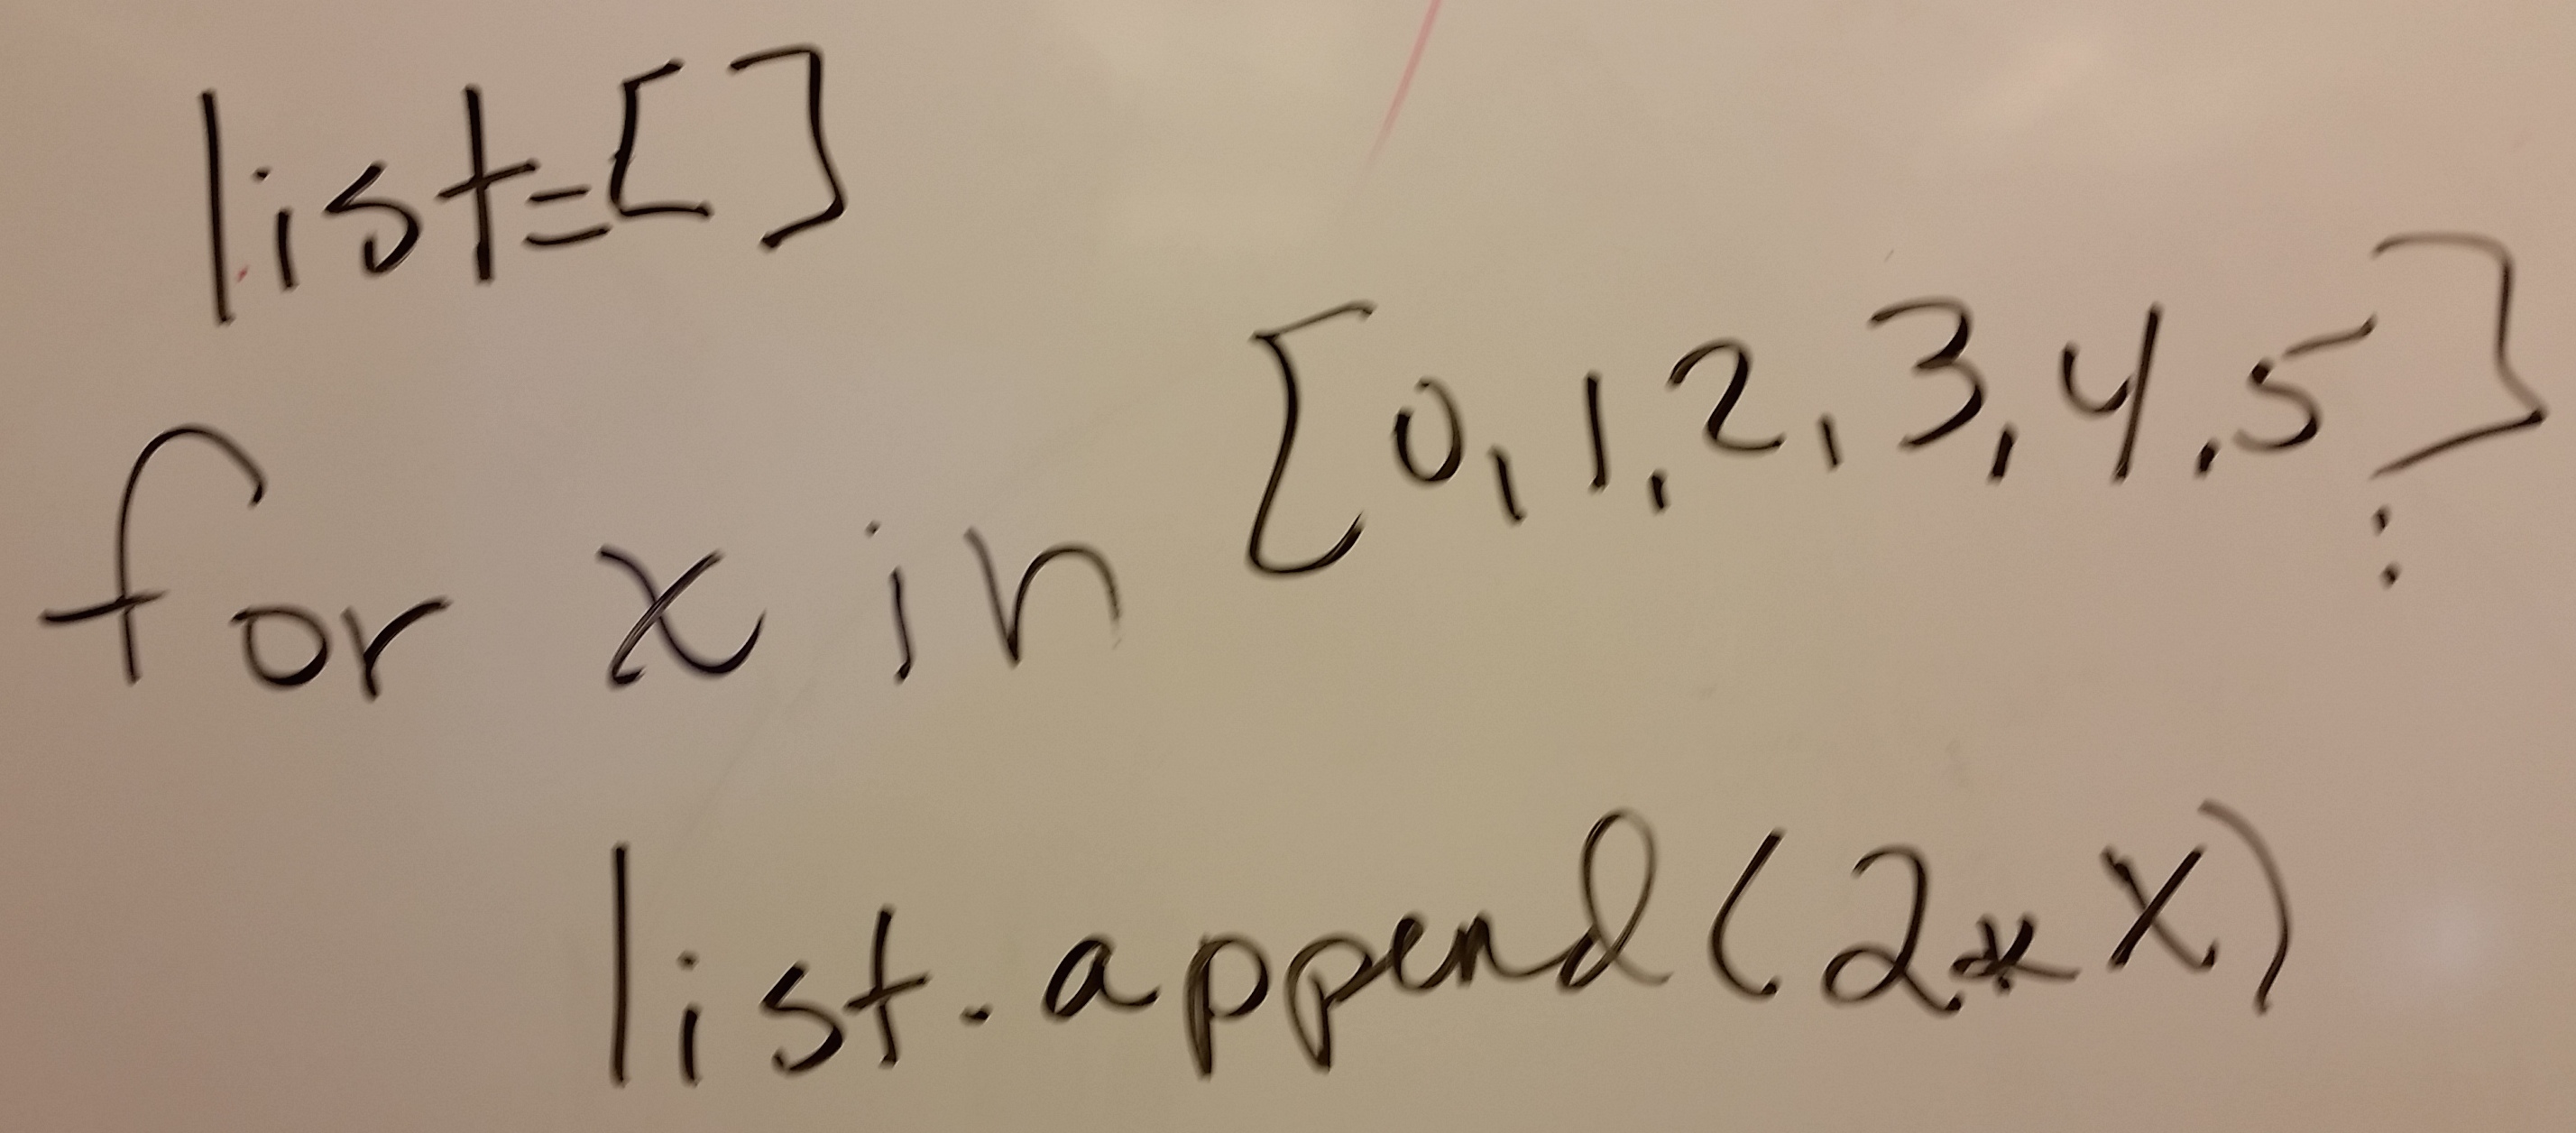 list=[]
for x in [0,1,2,3,4,5]:
list.append(2*x)